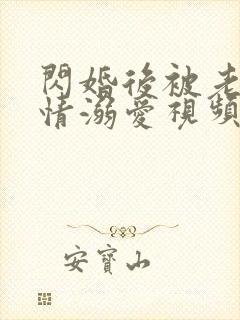 閃婚後被老
情溺愛視頻
安寶山